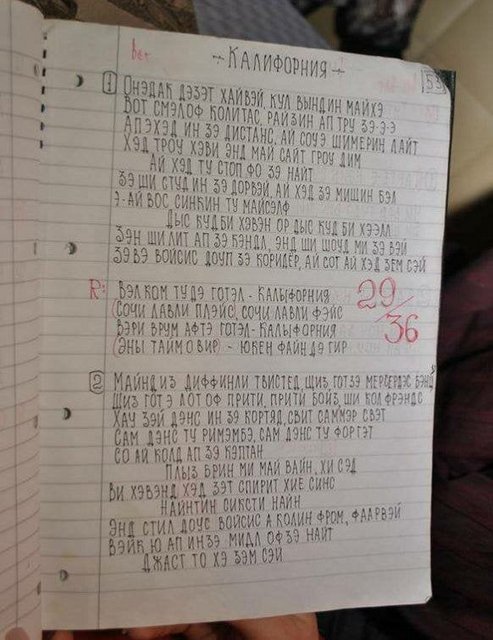 бег
- КАЛИФОРНИЯ -
53
1 ОНЭДАК ДЭЗЭТ ХАЙВЭЙ, КУЛ ВЫНДИН МАЙХЭ
ВОТ СМЭЛОФ КОЛИТАС, РАЙЗИН АП ТРУ ЗЭ-Э-Э
АПЭХЭД ИН ЗЭ ДИСТАНС, АЙ СОУЭ ШИМЕРИН ЛАЙТ
ХЭД ГРОУ ХЭВИ ЭНД МАЙ САЙТ ГРОУ ДИМ
АЙ ХЭД ТУ СТОП ФО ЗЭ НАЙТ
ЗЭ ШИ СТУД ИН ЗЭ ДОРВЭЙ, АЙ ХЭД ЗЭ МИШИН БЭЛ
Э-АЙ ВОС СИНКИН ТУ МАЙСЭЛФ
ДЫС КУД БИ ХЭВЭН ОР ДЫС КУД БИ ХЭЭЛЛ
ЗЭН ШИ ЛИТ АП ЗЭ КЭНДЛ, ЭНД ШИ ШОУД МИ ЗЭ ВЭЙ
ЗЭ ВЭ ВОЙСИС ДОУН ЗЭ КОРИДЕР, АЙ СОТ АЙ ХЭД ЗЕМ СЭЙ
R: ВЭЛКОМ ТУ ДЭ ГОТЭЛ - КАЛЫФОРНИЯ
(СОЧИ ЛАВЛИ ПЛЭЙС), СОЧИ ЛАВЛИ ФЭЙС
ВЭРИ ВРУМ АФТЭ ГОТЭЛ - КАЛЫФОРНИЯ
(ЭНЫ ТАЙМ О ВИР) - ЮКЕН ФАЙН ДЭ ГИР
29/36
2 МАЙНД ИЗ ДИФФИНЛИ ТВИСТЕД, ЩИЗ ГОТЗЭ МЕРСЕРДЭС БЭНД
ШИЗ ГОТ Э ЛОТ ОФ ПРИТИ, ПРИТИ БОЙЗ, ШИ КОЛ ФРЭНДС
ХАУ ЗЭЙ ДЭНС ИН ЗЭ КОРТЯД, СВИТ САММЭР СВЭТ
САМ ДЭНС ТУ РИМЭМБЭ, САМ ДЭНС ТУ ФОРГЭТ
СО АЙ КОЛД АП ЗЭ КЭПТАН
ПЛЫЗ БРИН МИ МАЙ ВАЙН, ХИ СЭД
ВИ ХЭВЭНД ХЭД ЗЭТ СПИРИТ ХИЕ СИНС
НАЙНТИН СИКСТИ НАЙН
ЭНД СТИЛ ДОУС ВОЙСИС А КОЛИН ФРОМ, ФААРВЭЙ
ВЭЙК Ю АП ИНЗЭ МИДЛ ОФ ЗЭ НАЙТ
ДЖАСТ ТО ХЭ ЗЭМ СЭЙ